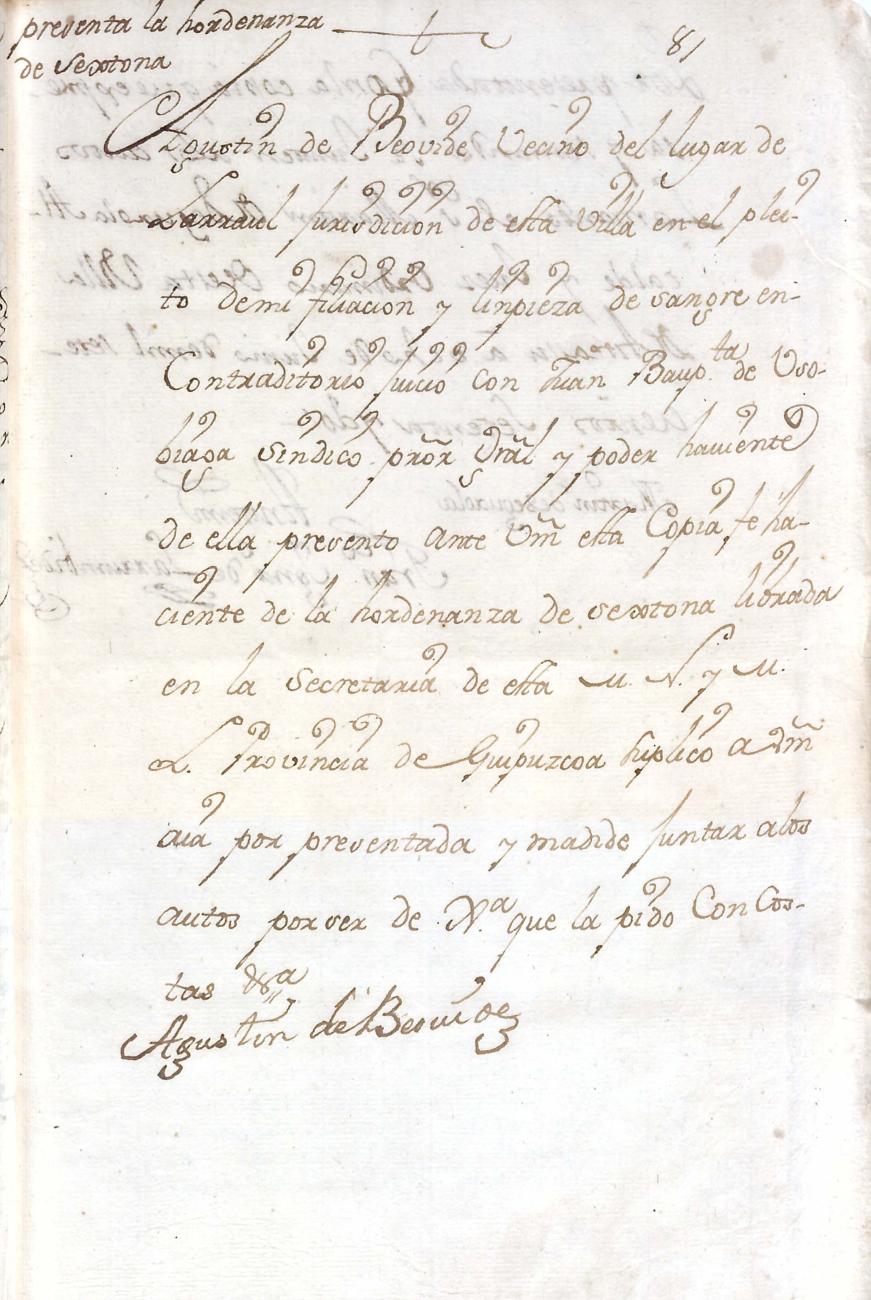 presenta la hordenanza
de sextona
81
Agustin de Beovide Vecino del lugar de
Larraul jurisdicion de esta Villa en el plei-
to de mi filiacion y linpieza de sangre en-
Contraditorio juicio con Juan Baup.ta de Uso-
biaga sindico pror gral y poder haviente
de ella presento ante Vm esta Copia feha-
ciente de la hordenanza de sextona librada
en la secretaria de esta M. N. y M.
L. Provincia de Guipuzcoa suplico a Vm
aia por presentada y madide juntar a los
autos por ser de X.a que la pido Con Cos-
tas &.a
Agustin de Beovide